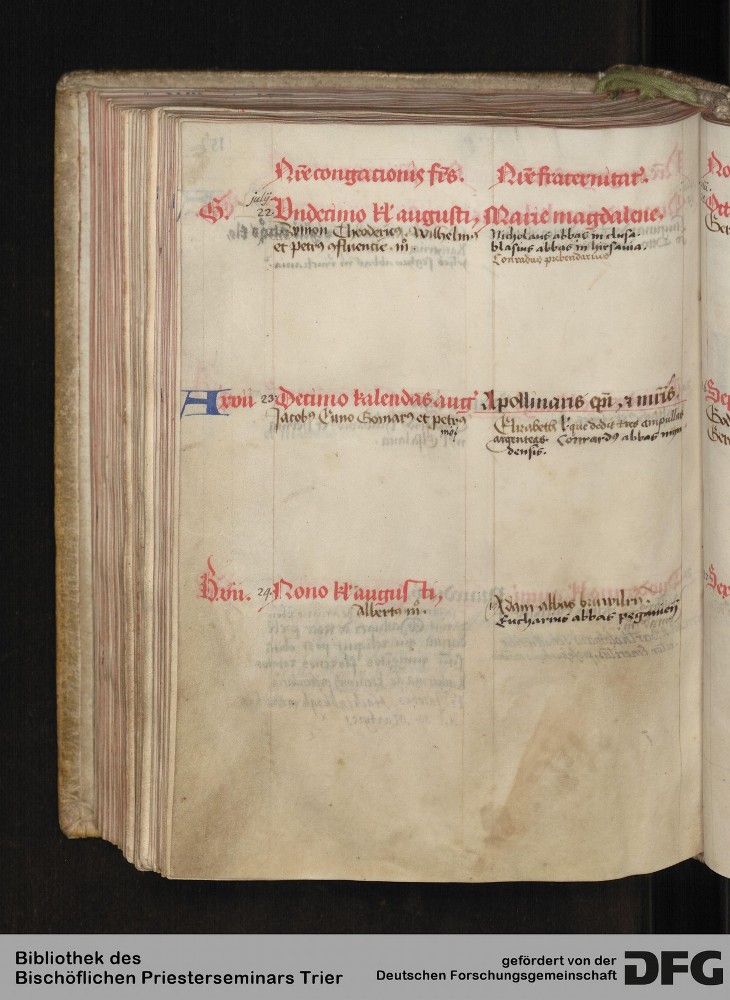 Nre congacionis frs. Nre fraternitat.
july
G. 22. Undecimo kl augusti, Marie magdalene.
Symon Theodericus. Wilhelmus
et petrus 9fluentie. m.
Nicholaus abbas in clusa.
blasius abbas in hirsauia.
Conradus prebendarius
A xvii 23. Decimo kalendas aug Apollinaris epi & mris.
Jacobus Cuno Gomarus et petrus
mo
Elizabeth l que dedit tres ampullas
argenteas Conrardus abbas
densis.
B vii. 24. Nono kl augusti,
Albertus m.
Adam abbas bruwilrn.
Eucharius abbas
Bibliothek des
Bischöflichen Priesterseminars Trier
gefördert von der
Deutschen Forschungsgemeinschaft DFG